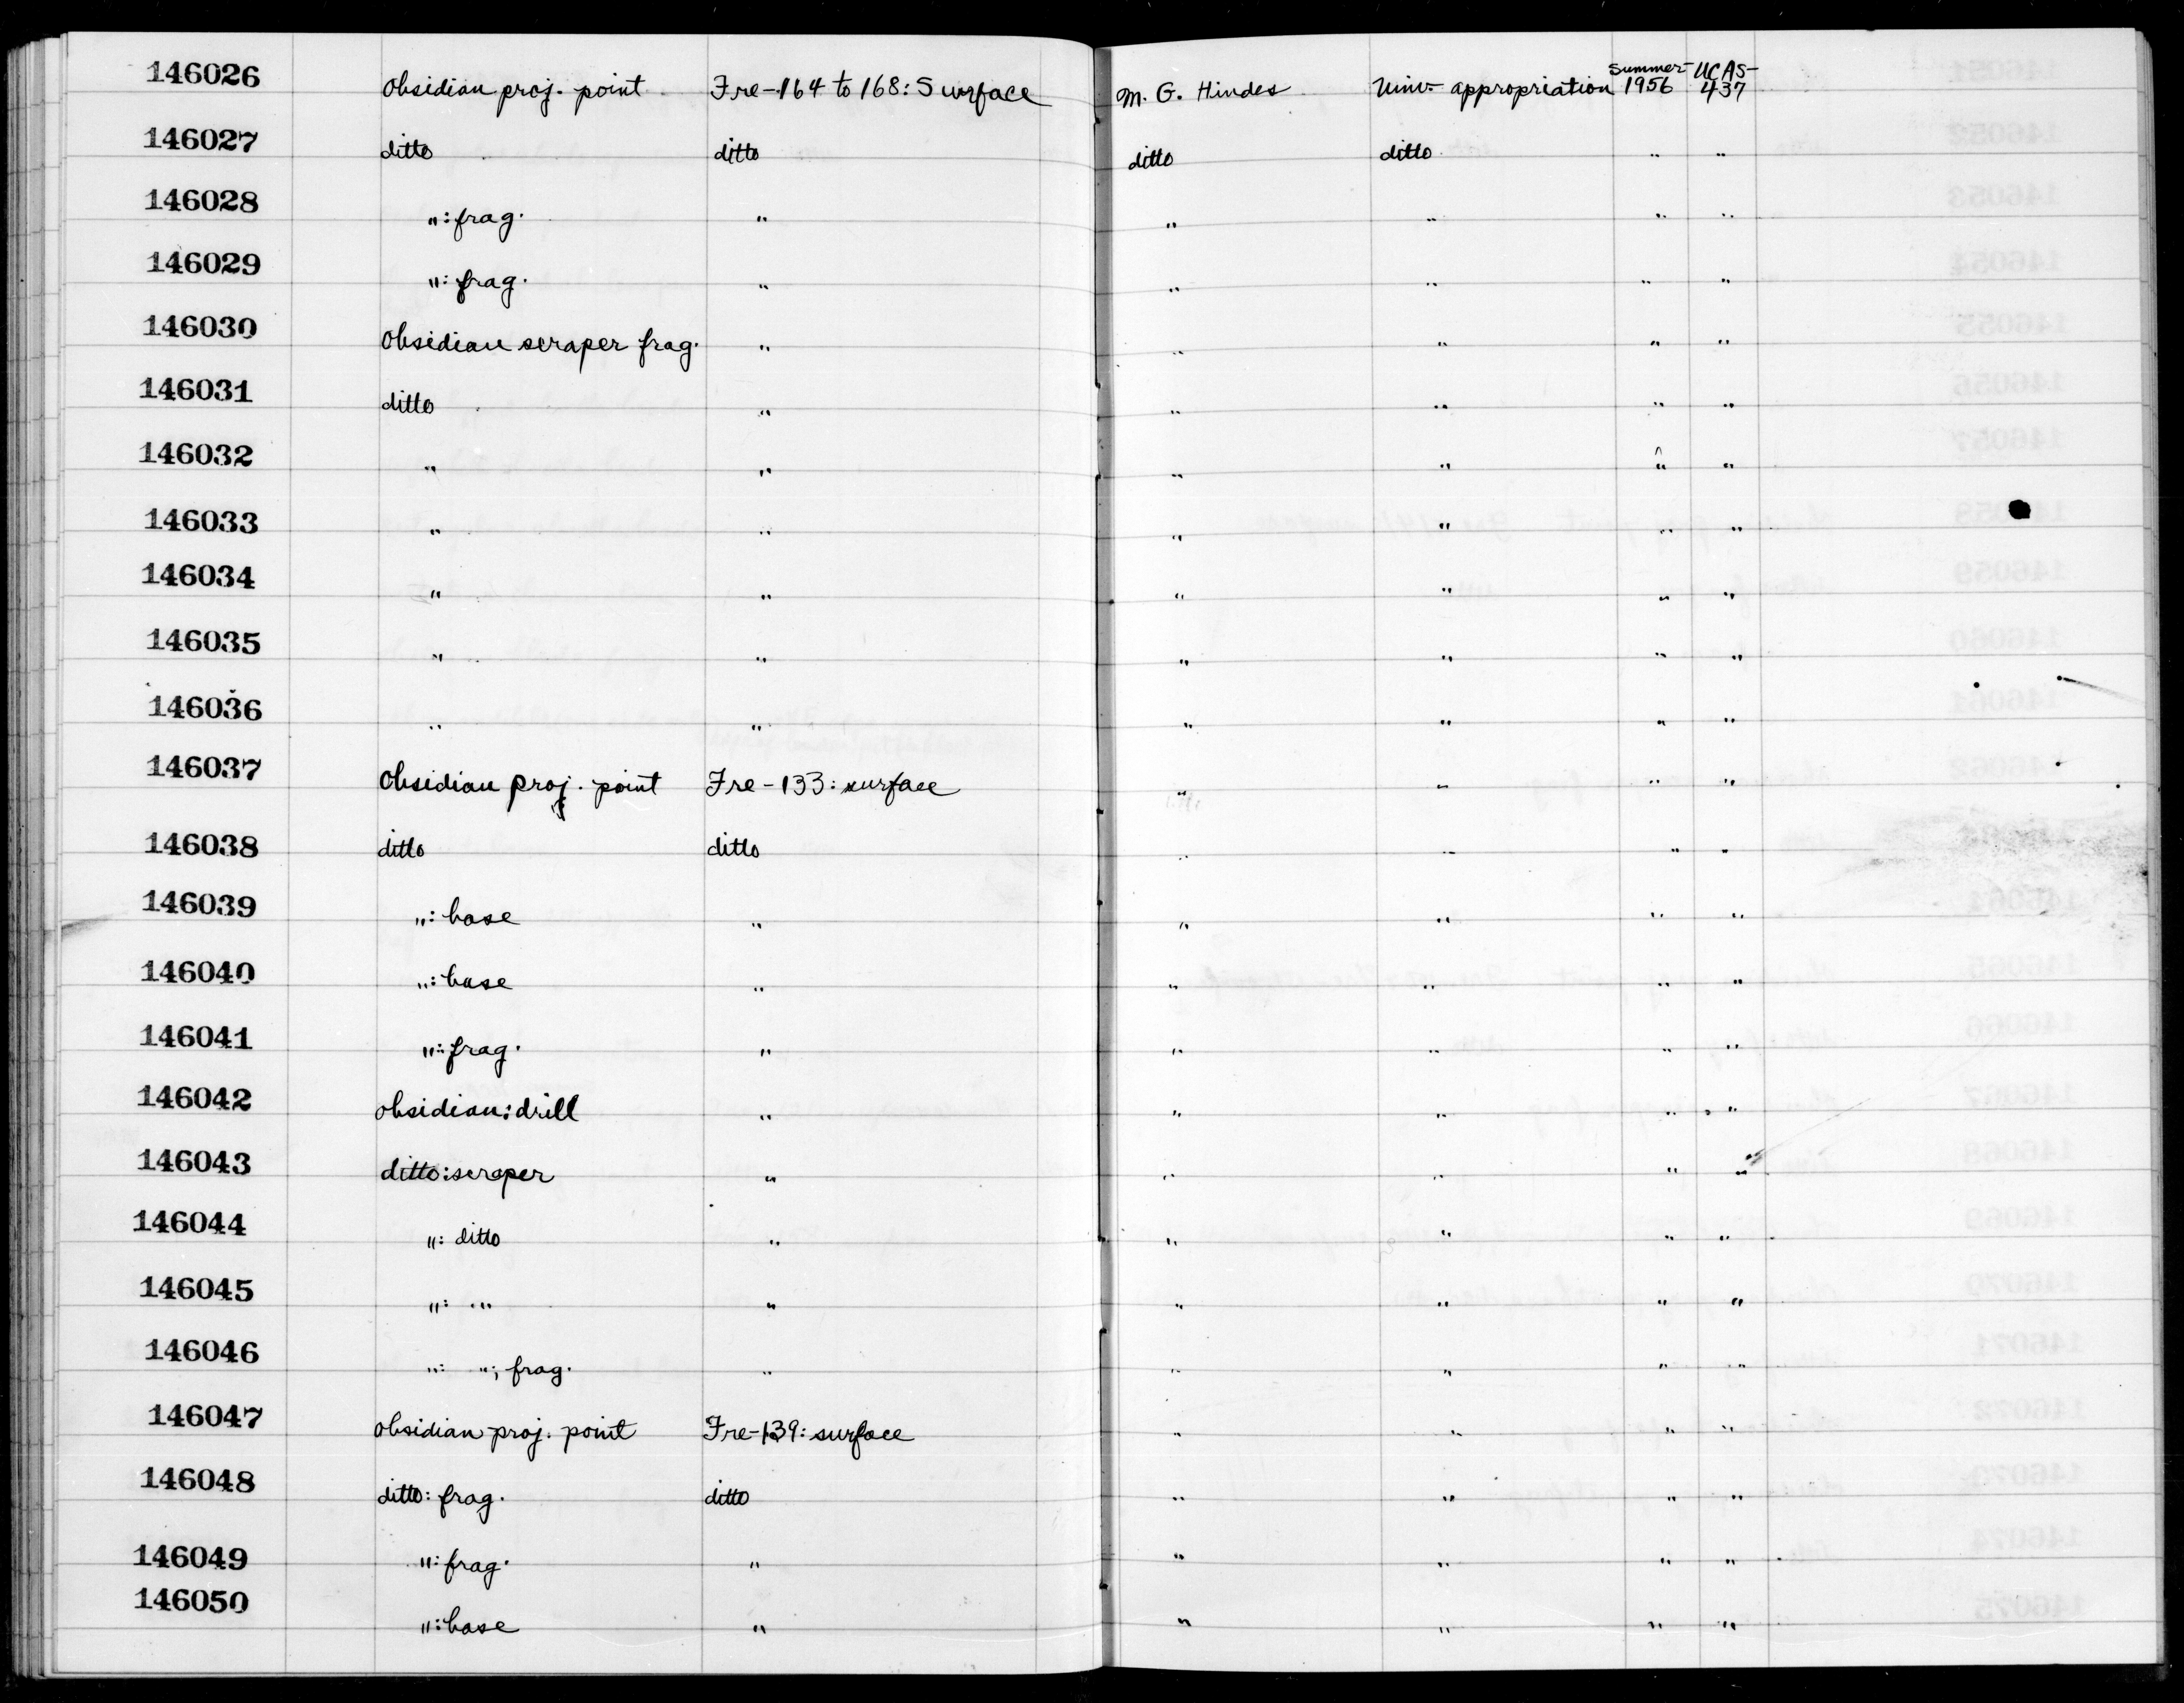 146026 Obsidian proj. point Fre-164 to 168: Surface M. G. Hindes Univ. appropriation Summer 1956 UCAS-437
146027 ditto ditto ditto ditto " "
146028 ": frag. " " " " "
146029 ": frag. " " " " "
146030 Obsidian scraper frag. " " " " "
146031 ditto " " " " "
146032 " " " " " "
146033 " " " " " "
146034 " " " " " "
146035 " " " " " "
146036 " " " " " "
146037 Obsidian proj. point Fre-133: surface " " " "
146038 ditto ditto " " " "
146039 ": base " " " " "
146040 ": base " " " " "
146041 ": frag. " " " " "
146042 obsidian: drill " " " " "
146043 ditto: scraper " " " " "
146044 ": ditto " " " " "
146045 ": " " " " " "
146046 ": "; frag. " " " " "
146047 obsidian proj. point Fre-139: surface " " " "
146048 ditto: frag. ditto " " " "
146049 ": frag. " " " " "
146050 ": base " " " " "